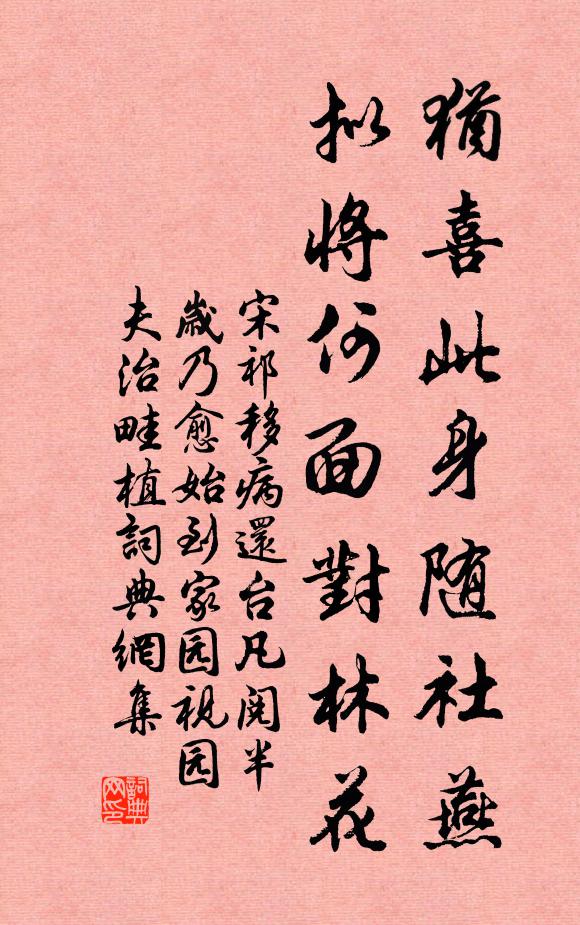 猶喜此身随社燕
拟將何面對林花
宋祁移病還台凡阅半
歲乃愈始到家园视园
夫治畦植詞典網集
詞典
网印